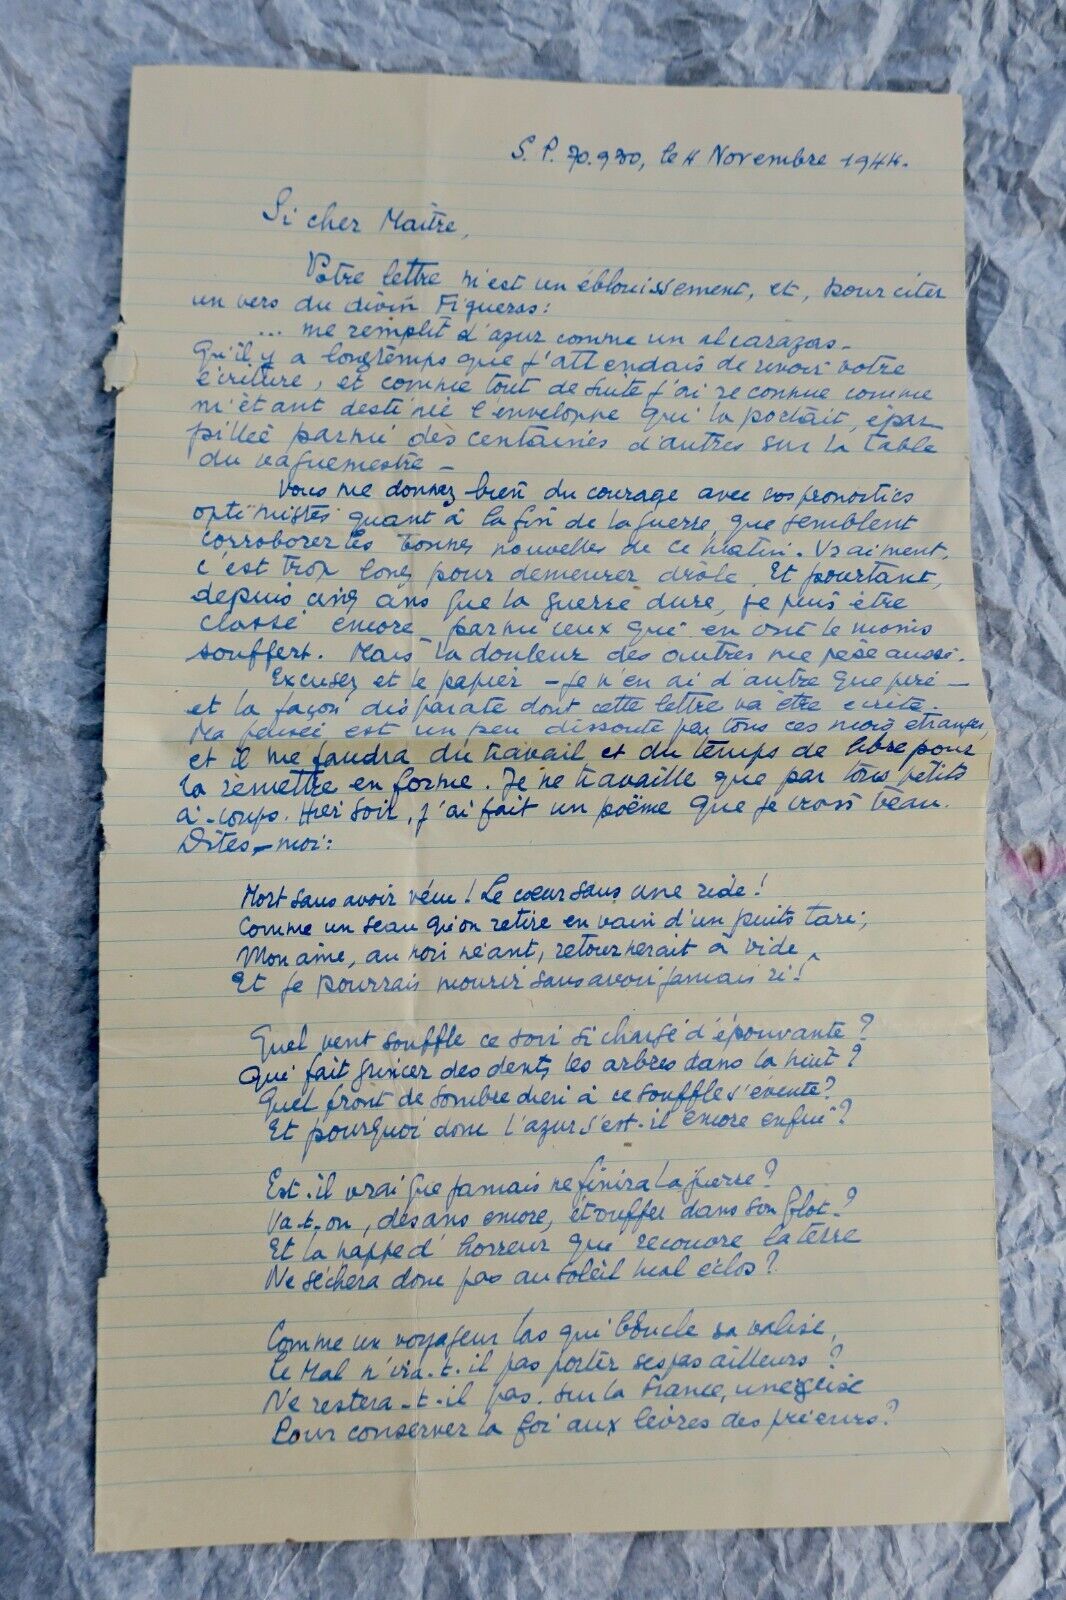 S. P. 70.930, le 4 Novembre 1944.
Si cher Maître,
Votre lettre m'est un éblouissement, et, pour citer
un vers du divin Figueras:
... me remplit d'azur comme un alcarazas.
Qu'il y a longtemps que j'attendais de revoir votre
écriture, et comme tout de suite j'ai reconnue comme
m'étant destinée l'enveloppe qui la portait, épar
pillée parmi des centaines d'autres sur la table
du vaguemestre –
Vous me donnez bien du courage avec vos pronostics
optimistes quant à la fin de la guerre, que semblent
corroborer les bonnes nouvelles de ce matin. Vraiment,
c'est trop long pour demeurer drôle. Et pourtant,
depuis cinq ans que la guerre dure, je puis être
classé encore parmi ceux qui en ont le moins
souffert. Mais la douleur des autres me pèse aussi.
Excusez et le papier – je n'en ai d'autre que
et la façon disparate dont cette lettre va être écrite.
Ma pensée est un peu dissoute par tous ces mois étranges,
et il me faudra du travail et du temps de libre pour
la remettre en forme. Je ne travaille que par tous petits
à-coups. Hier soir, j'ai fait un poëme que je crois beau.
Dites-moi:
Mort sans avoir vécu! Le cœur sans une ride!
Comme un seau qu'on retire en vain d'un puits tari,
Mon âme, au noir néant, retournerait à vide
Et je pourrais mourir sans avoir jamais ri!
Quel vent souffle ce soir si chargé d'épouvante?
Qui fait grincer des dents les arbres dans la nuit?
Quel front de sombre dieu à ce souffle s'évente?
Et pourquoi donc l'azur s'est-il encore enfui?
Est-il vrai que jamais ne finira la guerre?
Va-t-on, des ans encore, étouffer dans son flot?
Et la nappe d'horreur qui recouvre la terre
Ne séchera donc pas au soleil mal éclos?
Comme un voyageur las qui boucle sa valise,
Le Mal n'ira-t-il pas porter ses pas ailleurs?
Ne restera-t-il pas, sur la France, une église
Pour conserver la foi aux lèvres des prieurs?